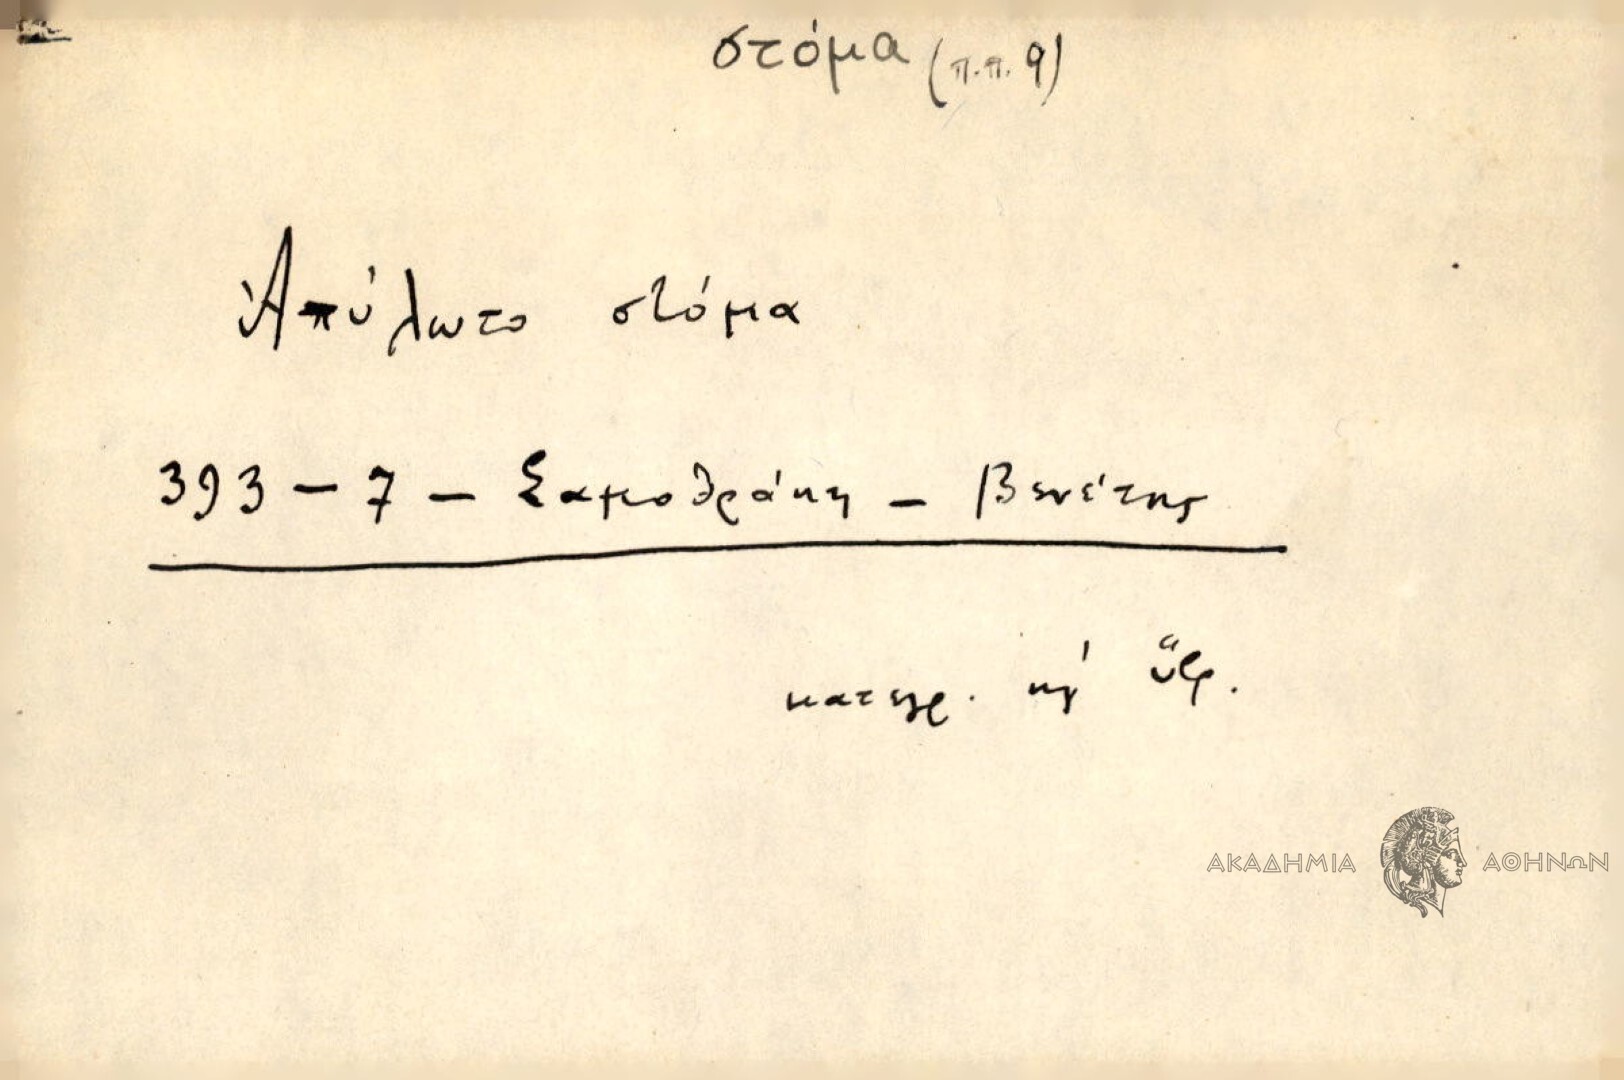 στόμα (π.π. 9)
Ἀπύλωτο στόμα
393 – 7 – Σαμοθράκη – Βενέτης
κατεγρ. κγ' ὕβρ.
ΑΚΑΔΗΜΙΑ ΑΘΗΝΩΝ